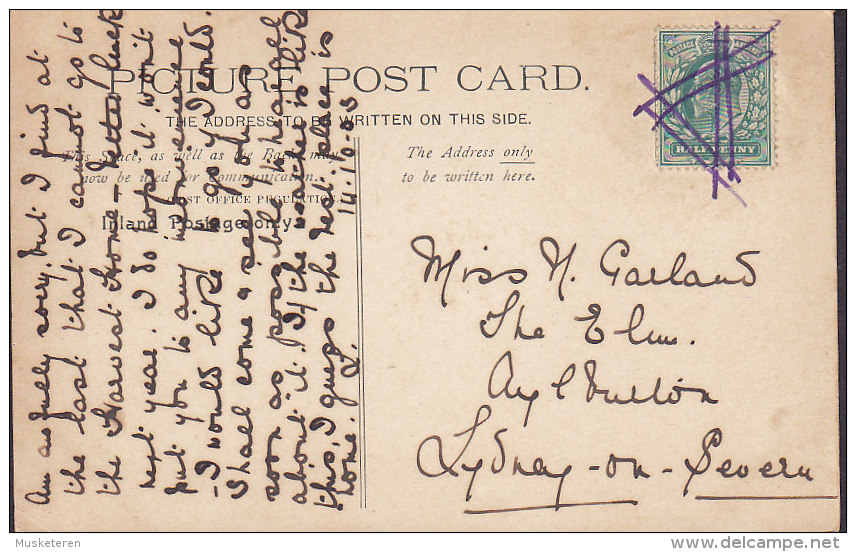 PICTURE POST CARD.
THE ADDRESS TO BE WRITTEN ON THIS SIDE.
This Space, as well as the Back, may
now be used for Communication.
POST OFFICE REGULATION.
Inland Postage only.
The Address only
to be written here.
POSTAGE
HALFPENNY
Miss N. Garland
The Elms.
Aylburton
Lydney-on-Severn
14.10.03
Am awfully sorry, but I find at
the last that I cannot go to
the Harvest Home - better luck
next year. I do hope it won't
put you to any inconvenience
- I would like to go if I could.
Shall come & see you as
soon as possible & hear all
about it. If the weather is like
this, I guess the best place is
home.
Musketeren
delcampe.net